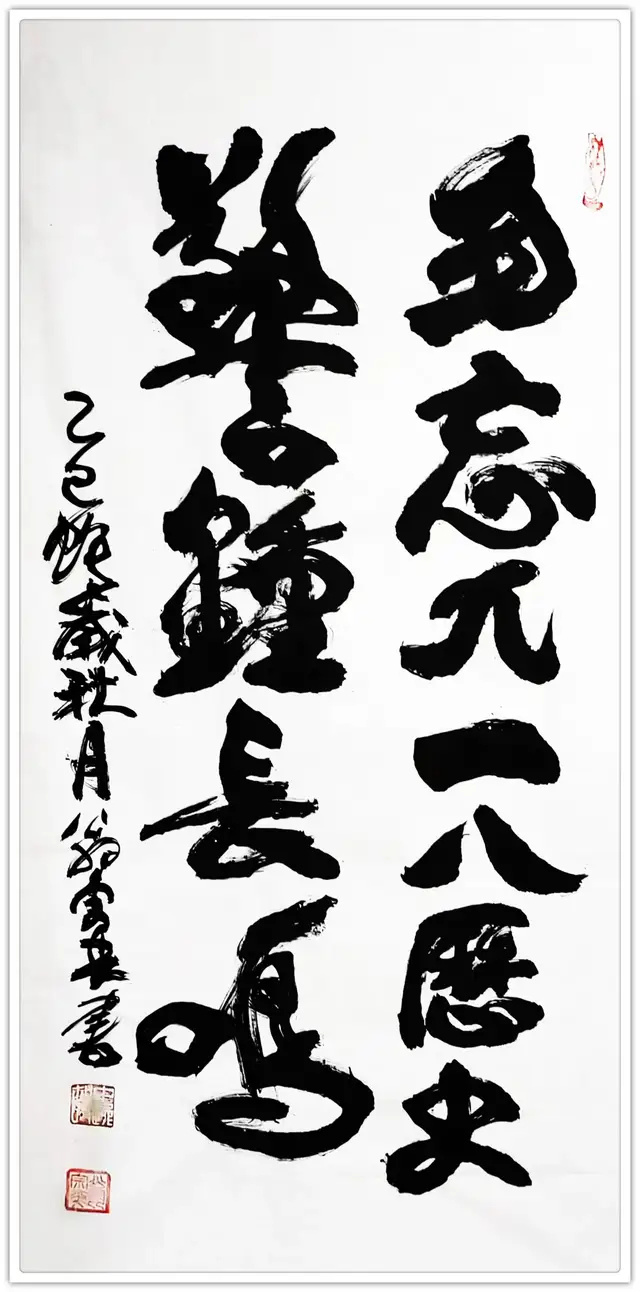 毋忘九一八歷史
警鐘長鳴
乙巳蛇歲秋月翁
書